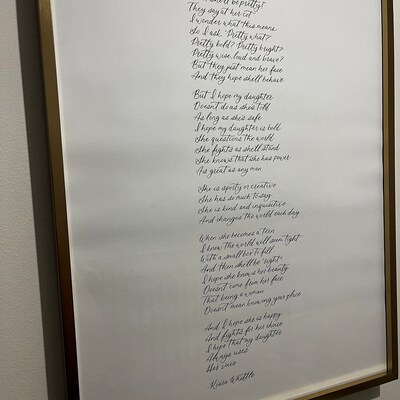 be pretty!
They say at her cot
I wonder what this means
So I ask "Pretty what?
Pretty bold? Pretty bright?
Pretty wise, loud and brave?
But they just mean her face
And they hope she'll behave
But I hope my daughter
Doesn't do as she's told
As long as she's safe
I hope my daughter is bold
She questions the world
She fights as she'll stand
She knows that she has power
As great as any man
She is sporty or creative
She has so much to say
She is kind and inquisitive
And changes the world each day
When she becomes a teen
I know the world will seem tight
With a small box to fill
And then she'll be "right"
I hope she knows her beauty
Doesn't come from her face
That being a woman
Doesn't mean knowing your place
And I hope she is happy
And fights for her choice
I hope that my daughter
Always uses
Her voice